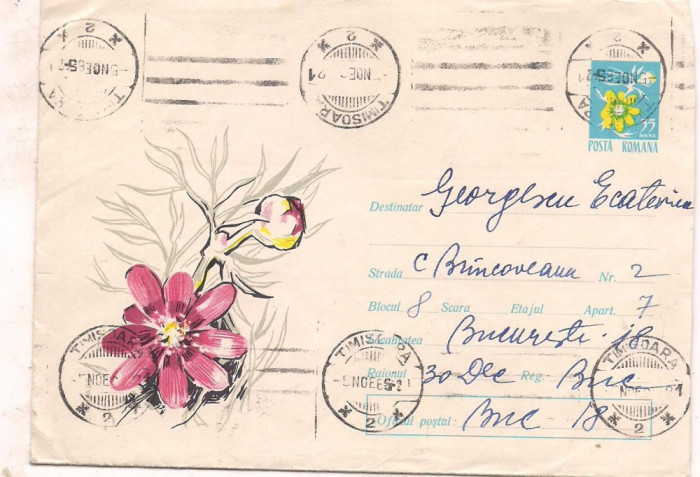 TIMISOARA 2
TIMISOARA 2
55
BANI
POSTA ROMANA
Destinatar Georgescu Ecaterina
Strada C Brîncoveanu Nr. 2
Blocul 8 Scara Etajul Apart. 7
Localitatea Bucureşti 18
Raionul 30 Dec Reg. Buc
Oficiul poştal: Buc 18
TIMISOARA 2
TIMISOARA 2
TIMISOARA 2